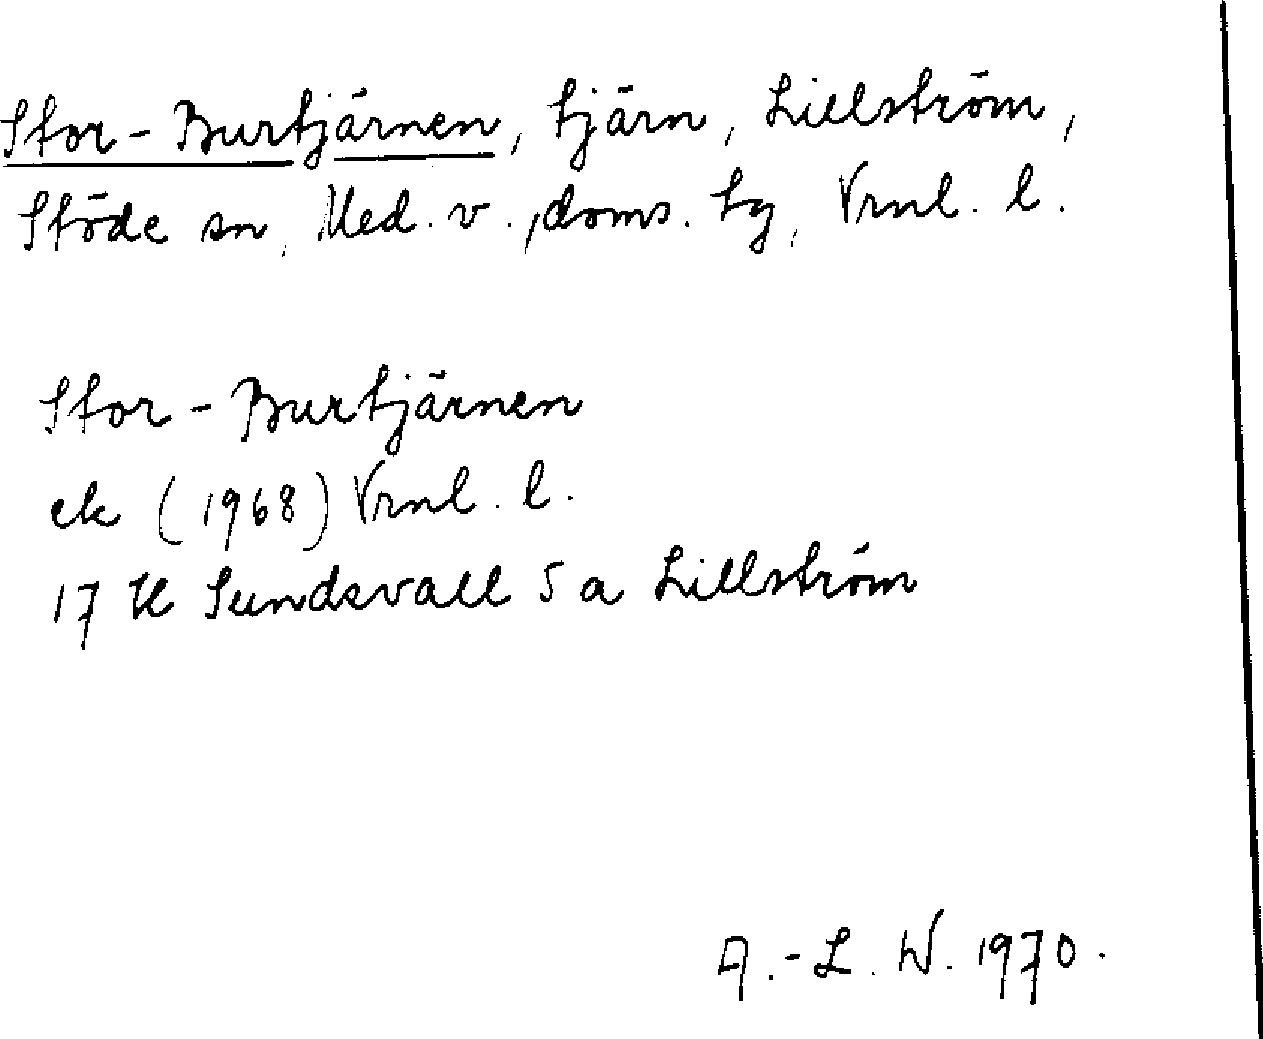 Stor-Burtjärnen, tjärn, Lillström,
Stöde sn, Med. v., doms. tg, Vrnl. l.
Stor-Burtjärnen
ek (1968) Vrnl. l.
17 H Sundsvall 5 a Lillström
A.-L. W. 1970.